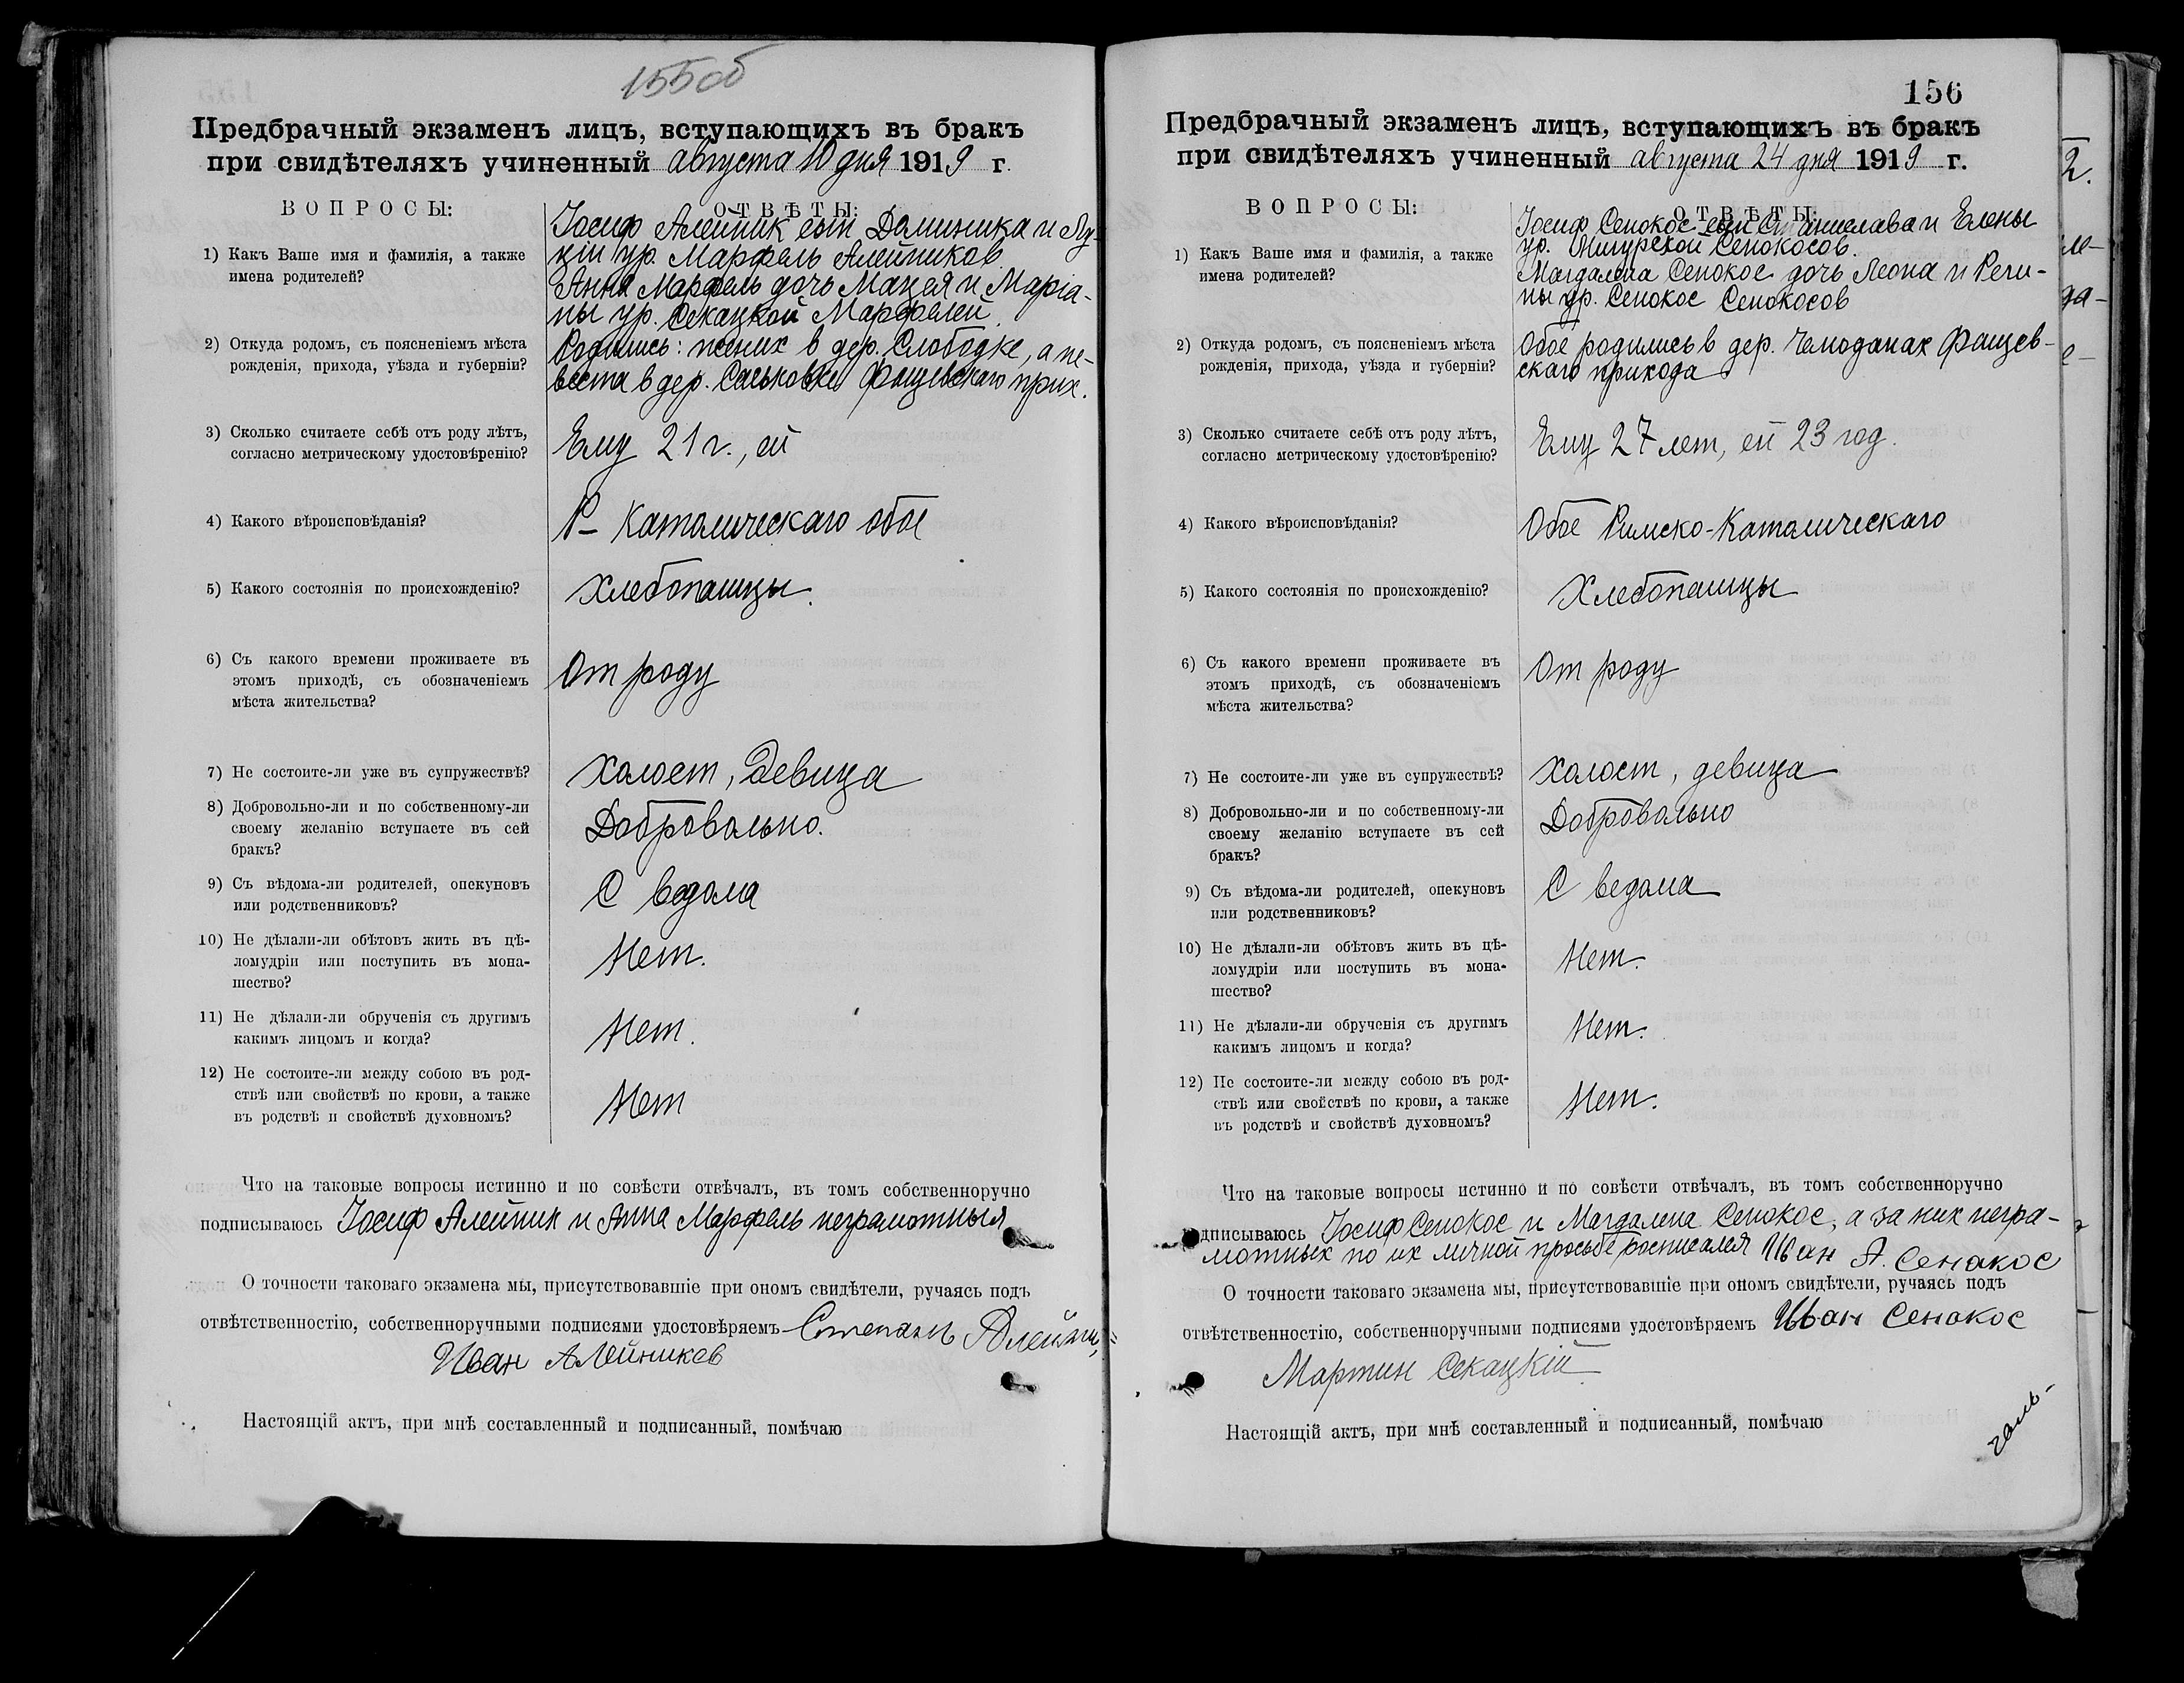 155об
Предбрачный экзаменъ лицъ, вступающихъ въ бракъ
при свидѣтеляхъ учиненный августа 10 дня 1919 г.
ВОПРОСЫ:
ОТВѢТЫ:
1) Какъ Ваше имя и фамилія, а также
имена родителей?
Іосиф Алейник сын Доминика и Лу-
ціи ур. Марфель Алейников
Анна Марфель дочь Мацея и Маріа-
ны ур. Секацкой Марфелей.
2) Откуда родомъ, съ поясненіемъ мѣста
рожденія, прихода, уѣзда и губерніи?
Родились: жених в дер. Слободке, а не-
веста в дер. Саськовке Фащевскаго прих.
3) Сколько считаете себѣ отъ роду лѣтъ,
согласно метрическому удостовѣренію?
Ему 21 г., ей
4) Какого вѣроисповѣданія?
Р-Католическаго обое
5) Какого состоянія по происхожденію?
Хлебопашцы.
6) Съ какого времени проживаете въ
этомъ приходѣ, съ обозначеніемъ
мѣста жительства?
От роду
7) Не состоите-ли уже въ супружествѣ?
Холост, Девица
8) Добровольно-ли и по собственному-ли
своему желанію вступаете въ сей
бракъ?
Добровольно.
9) Съ вѣдома-ли родителей, опекуновъ
или родственниковъ?
С ведома
10) Не дѣлали-ли обѣтовъ жить въ цѣ-
ломудріи или поступить въ мона-
шество?
Нет.
11) Не дѣлали-ли обрученія съ другимъ
какимъ лицомъ и когда?
Нет.
12) Не состоите-ли между собою въ род-
ствѣ или свойствѣ по крови, а также
въ родствѣ и свойствѣ духовномъ?
Нет
Что на таковые вопросы истинно и по совѣсти отвѣчалъ, въ томъ собственноручно
подписываюсь Іосиф Алейник и Анна Марфель неграмотныя
О точности таковаго экзамена мы, присутствовавшіе при ономъ свидѣтели, ручаясь подъ
отвѣтственностію, собственноручными подписями удостовѣряемъ Степанъ
Иван Алейников
Настоящій актъ, при мнѣ составленный и подписанный, помѣчаю
156
Предбрачный экзаменъ лицъ, вступающихъ въ бракъ
при свидѣтеляхъ учиненный августа 24 дня 1919 г.
ВОПРОСЫ:
ОТВѢТЫ:
1) Какъ Ваше имя и фамилія, а также
имена родителей?
Іосиф Сенокос сын Станислава и Елены
ур. Сенокосов.
Магдалена Сенокос дочь Леона и Реги-
ны ур. Сенокос Сенокосов
2) Откуда родомъ, съ поясненіемъ мѣста
рожденія, прихода, уѣзда и губерніи?
Обое родились в дер. Чемоданах Фащев-
скаго прихода
3) Сколько считаете себѣ отъ роду лѣтъ,
согласно метрическому удостовѣренію?
Ему 27 лет, ей 23 год.
4) Какого вѣроисповѣданія?
Обое Римско-Католическаго
5) Какого состоянія по происхожденію?
Хлебопашцы
6) Съ какого времени проживаете въ
этомъ приходѣ, съ обозначеніемъ
мѣста жительства?
От роду
7) Не состоите-ли уже въ супружествѣ?
Холост, девица
8) Добровольно-ли и по собственному-ли
своему желанію вступаете въ сей
бракъ?
Добровольно
9) Съ вѣдома-ли родителей, опекуновъ
или родственниковъ?
С ведома
10) Не дѣлали-ли обѣтовъ жить въ цѣ-
ломудріи или поступить въ мона-
шество?
Нет.
11) Не дѣлали-ли обрученія съ другимъ
какимъ лицомъ и когда?
Нет.
12) Не состоите-ли между собою въ род-
ствѣ или свойствѣ по крови, а также
въ родствѣ и свойствѣ духовномъ?
Нет.
Что на таковые вопросы истинно и по совѣсти отвѣчалъ, въ томъ собственноручно
дписываюсь Іосиф Сенокос и Магдалена Сенокос, а за них негра-
мотных по их личной просьбе росписался Иван А. Сенакос
О точности таковаго экзамена мы, присутствовавшіе при ономъ свидѣтели, ручаясь подъ
отвѣтственностію, собственноручными подписями удостовѣряемъ Иван Сенокос
Мартин Секацкій
Настоящій актъ, при мнѣ составленный и подписанный, помѣчаю
2.